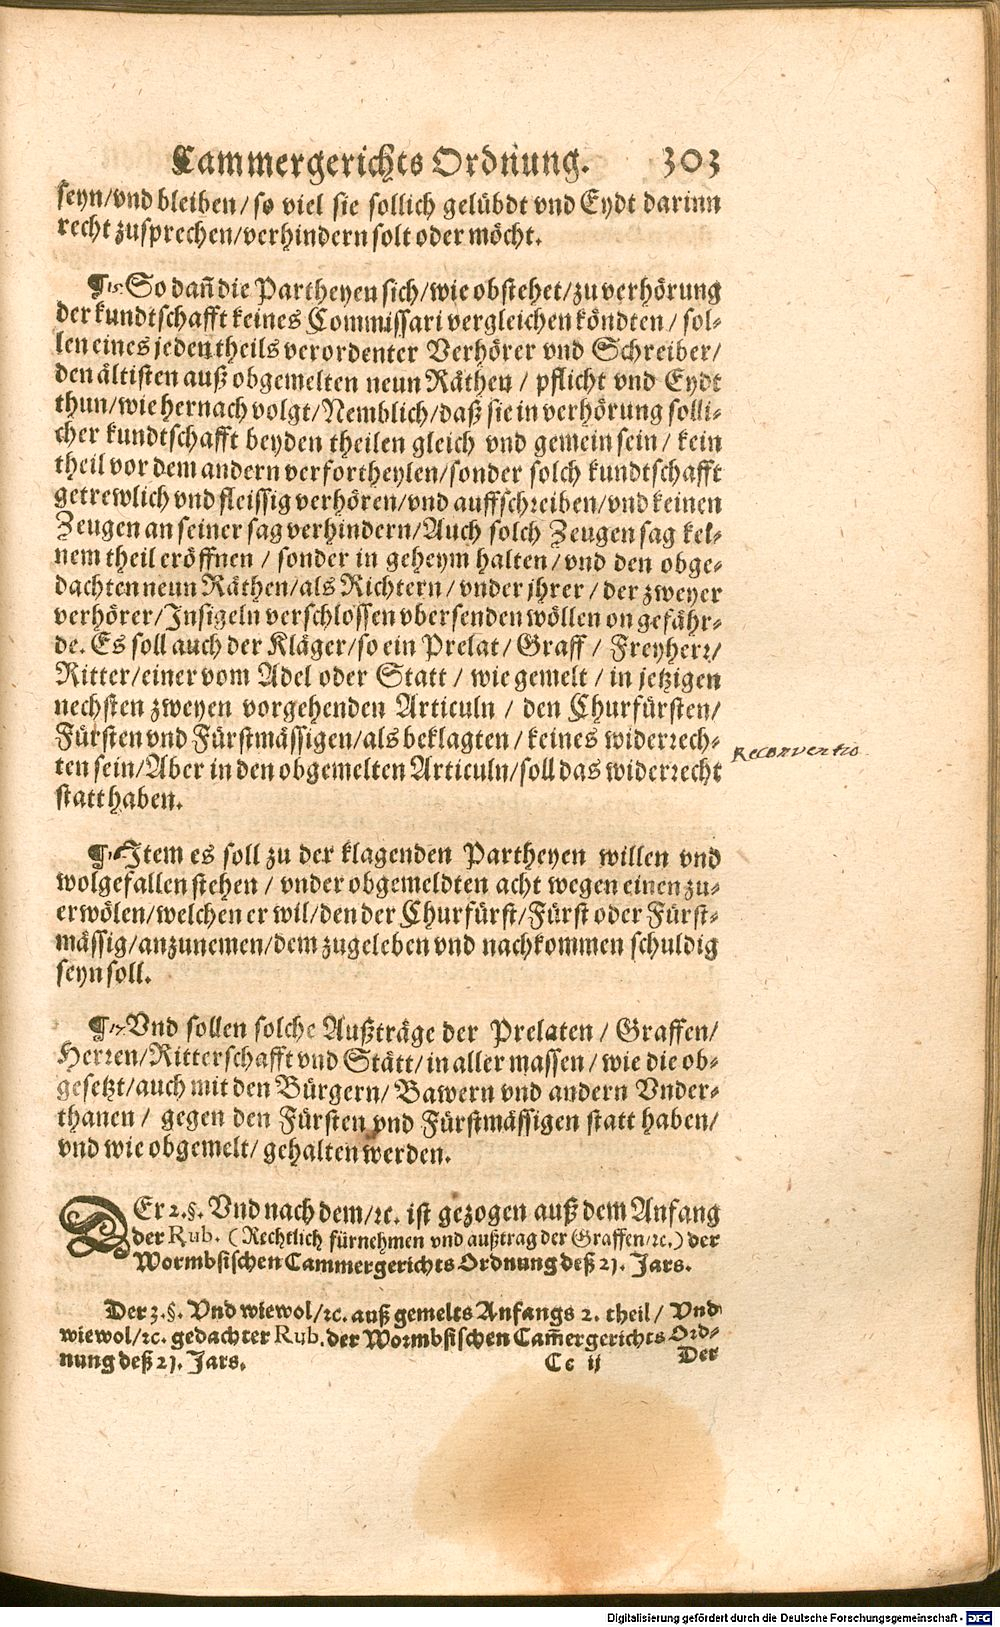 Cammergerichts Ordnung. 303
seyn/vnd bleiben/so viel sie sollich gelübdt vnd Eydt darinn
recht zusprechen/verhindern solt oder möcht.
¶ So dañ die Partheyen sich/wie obstehet/zu verhörung
der kundtschafft keines Commissari vergleichen köndten/sol-
len eines jeden theils verordenter Verhörer vnd Schreiber/
den ältisten auß obgemelten neun Räthen/pflicht vnd Eydt
thun/wie hernach volgt/Nemblich/daß sie in verhörung solli-
cher kundtschafft beyden theilen gleich vnd gemein sein/kein
theil vor dem andern verfortheylen/sonder solch kundtschafft
getrewlich vnd fleissig verhören/vnd auffschreiben/vnd keinen
Zeugen an seiner sag verhindern/Auch solch Zeugen sag kei-
nem theil eröffnen/sonder in geheym halten/vnd den obge-
dachten neun Räthen/als Richtern/vnder jhrer/der zweyer
verhörer/Insigeln verschlossen vbersenden wöllen on gefähr-
de. Es soll auch der Kläger/so ein Prelat/Graff/Freyherr/
Ritter/einer vom Adel oder Statt/wie gemelt/in jetzigen
nechsten zweyen vorgehenden Articuln/den Churfürsten/
Fürsten vnd Fürstmässigen/als beklagten/keines widerrech-
ten sein/Aber in den obgemelten Articuln/soll das widerrecht
statt haben.
Reconventio
¶ Item es soll zu der klagenden Partheyen willen vnd
wolgefallen stehen/vnder obgemeldten acht wegen einen zu-
erwölen/welchen er wil/den der Churfürst/Fürst oder Fürst-
mässig/anzunemen/dem zugeleben vnd nachkommen schuldig
seyn soll.
¶ Vnd sollen solche Außträge der Prelaten/Graffen/
Herren/Ritterschafft vnd Stätt/in aller massen/wie die ob-
gesetzt/auch mit den Bürgern/Bawern vnd andern Vnder-
thanen/gegen den Fürsten vnd Fürstmässigen statt haben/
vnd wie obgemelt/gehalten werden.
DEr 2.§. Vnd nach dem/ꝛc. ist gezogen auß dem Anfang
der Rub. (Rechtlich fürnehmen vnd außtrag der Graffen/ꝛc.) der
Wormbsischen Cammergerichts Ordnung deß 21. Jars.
Der 3.§. Vnd wiewol/ꝛc. auß gemelts Anfangs 2. theil/Vnd
wiewol/ꝛc. gedachter Rub. der Wormbsischen Cam̃ergerichts Ord-
nung deß 21. Jars. Cc ij Der
Digitalisierung gefördert durch die Deutsche Forschungsgemeinschaft - DFG